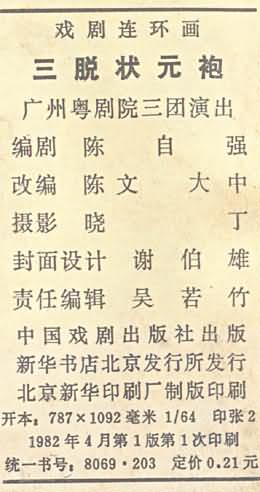 戏剧连环画
三脱状元袍
广州粤剧院三团演出
编剧 陈自强
改编 陈文大中
摄影 晓丁
封面设计 谢伯雄
责任编辑 吴若竹
中国戏剧出版社出版
新华书店北京发行所发行
北京新华印刷厂制版印刷
开本：787×1092毫米 1/64 印张2
1982年4月第1版第1次印刷
统一书号：8069·203 定价0.21元